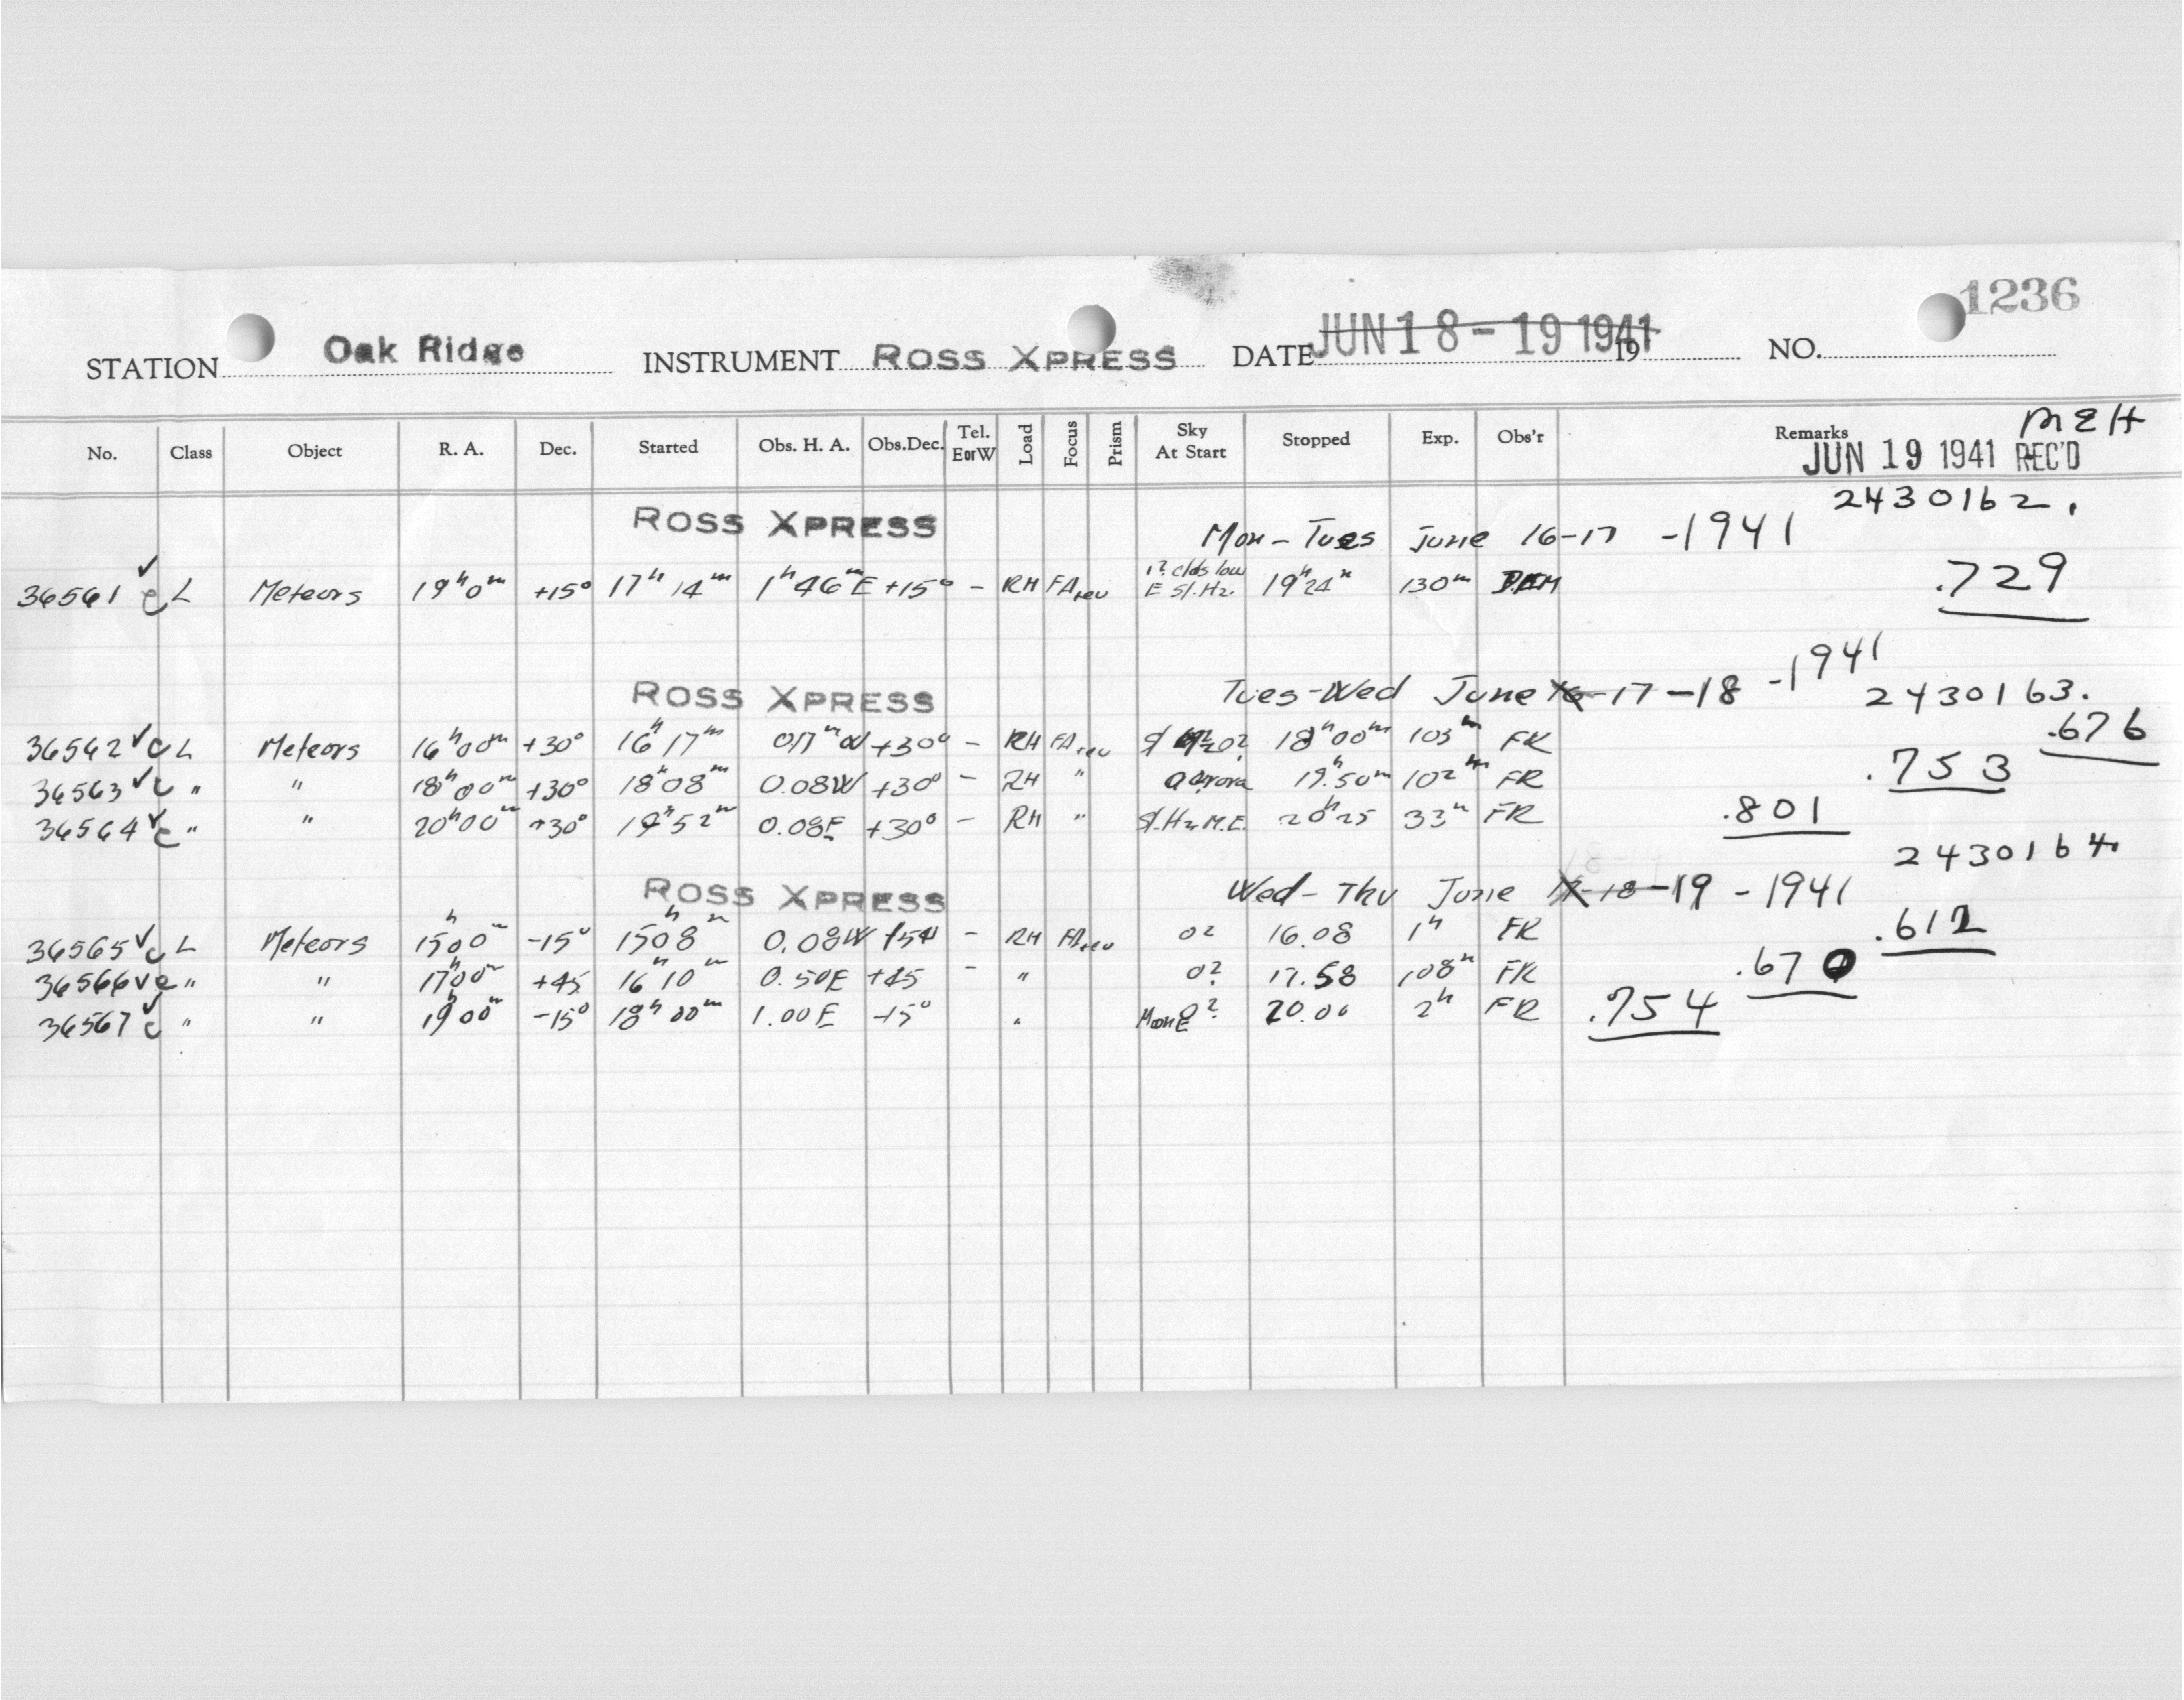 1236
STATION Oak Ridge INSTRUMENT ROSS XPRESS DATE JUN 18-19 1941 19 NO.
No. Class Object R. A. Dec. Started Obs. H. A. Obs.Dec. Tel. EorW Load Focus Prism Sky At Start Stopped Exp. Obs'r Remarks
MEH
JUN 19 1941 REC'D
2430162.
ROSS XPRESS Mon-Tues June 16-17 -1941
36561 ✓ c L Meteors 19h 0m +15° 17h 14m 1h 46m E +15° - RH FA rev clds low E Sl. Hz. 19h 24m 130m .729
ROSS XPRESS Tues-Wed June 16-17-18 -1941
2430163.
36562 ✓ c L Meteors 16h 00m +30° 16h 17m 017m W +30° - RH FA rev Sl 18h 00m 103m FR .676
36563 ✓ c " " 18h 00m +30° 18h 08m 0.08W +30° - RH " aurora 19h.50m 102m FR .753
36564 ✓ c " " 20h 00m +30° 19h 52m 0.08E +30° - RH " Sl. Hz N.E. 20h 25 33m FR .801
2430164.
ROSS XPRESS Wed-Thu June 17-18-19 - 1941
36565 ✓ c L Meteors 15h 00m -15° 15h 08m 0.08W - RH FA rev 0? 16.08 1h FR .612
36566 ✓ c " " 17h 00m +45 16h 10m 0.50E +45 - " 0? 17.58 108m FR .670
36567 ✓ c " " 19h 00m -15° 18h 00m 1.00E -15° " Moon E 0? 20.00 2h FR .754